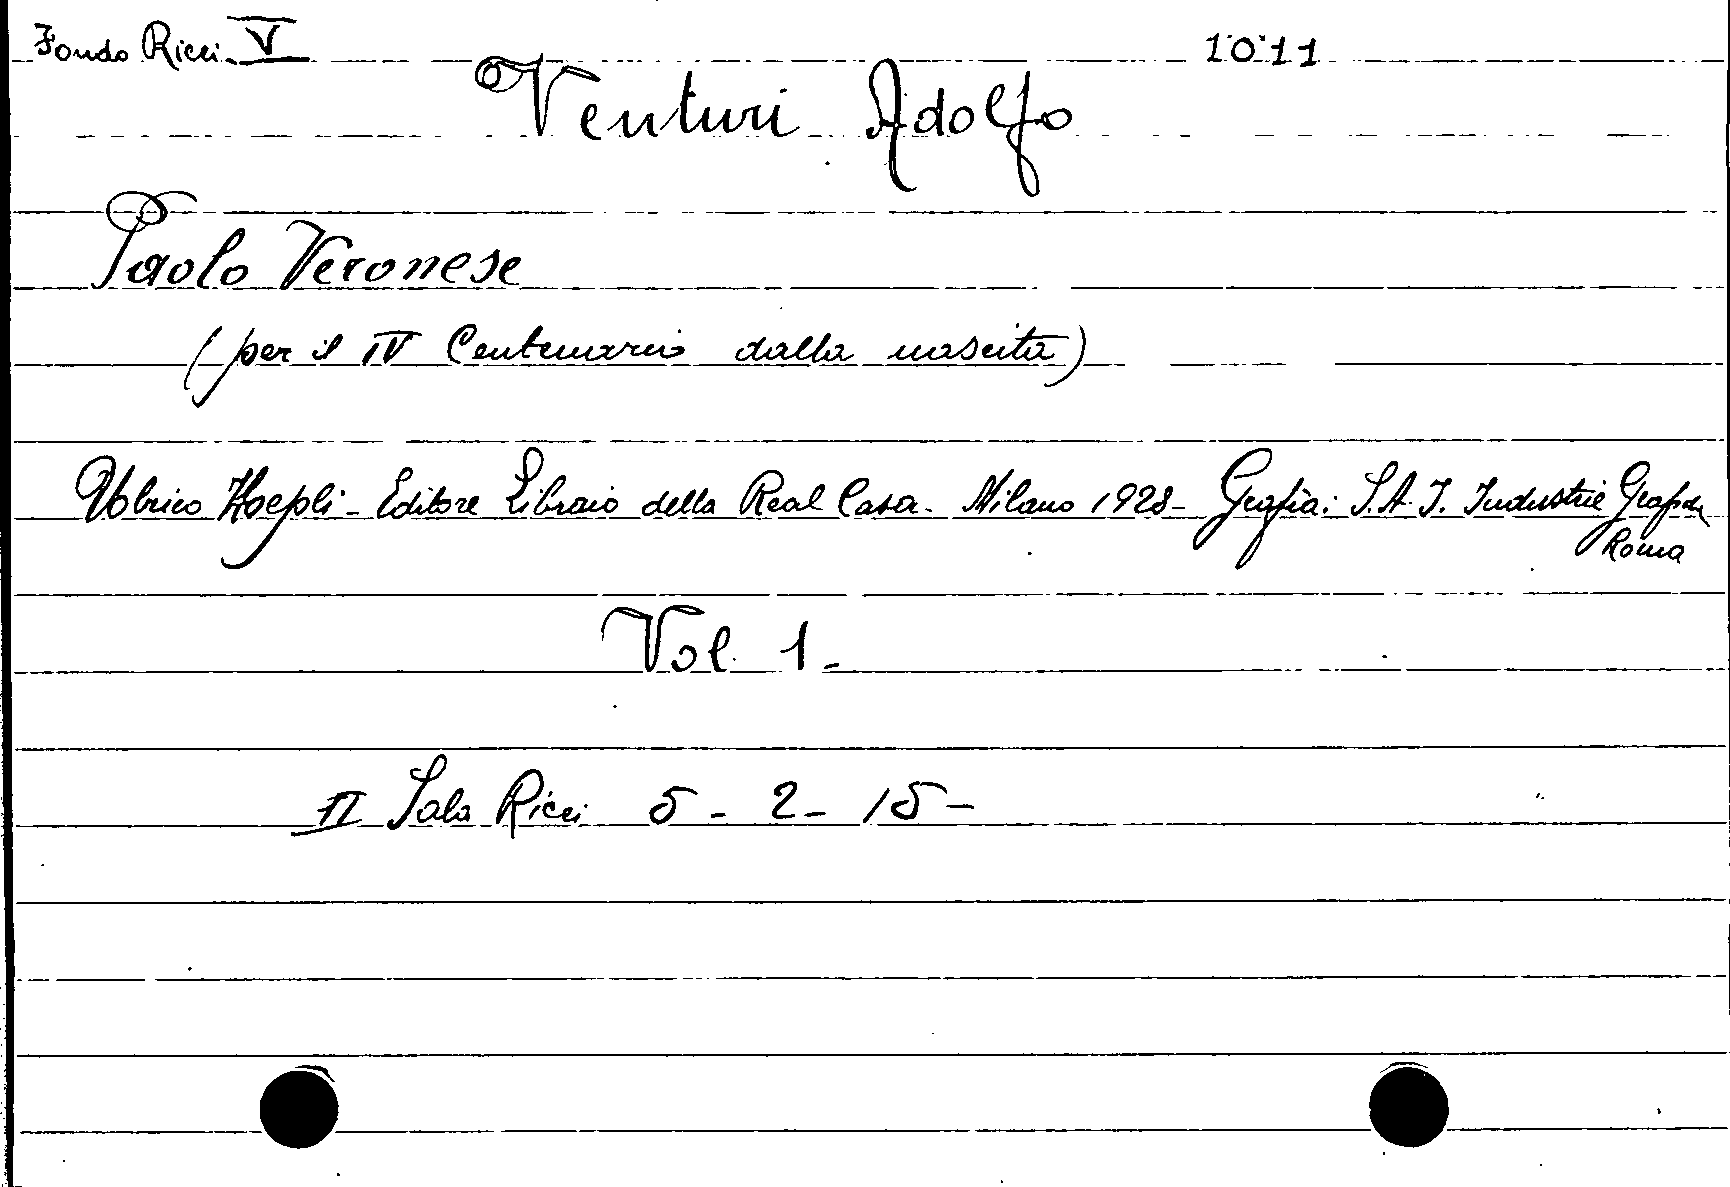 Fondo Ricci V 1011
Venturi Adolfo
Paolo Veronese
(per il IV Centenario dalla nascita)
Ulrico Hoepli - Editore Libraio della Real Casa - Milano 1928 - Grafia: S.A.I. Industrie Grafiche
Roma
Vol. 1 -
II Sala Ricci 5 - 2 - 15 -